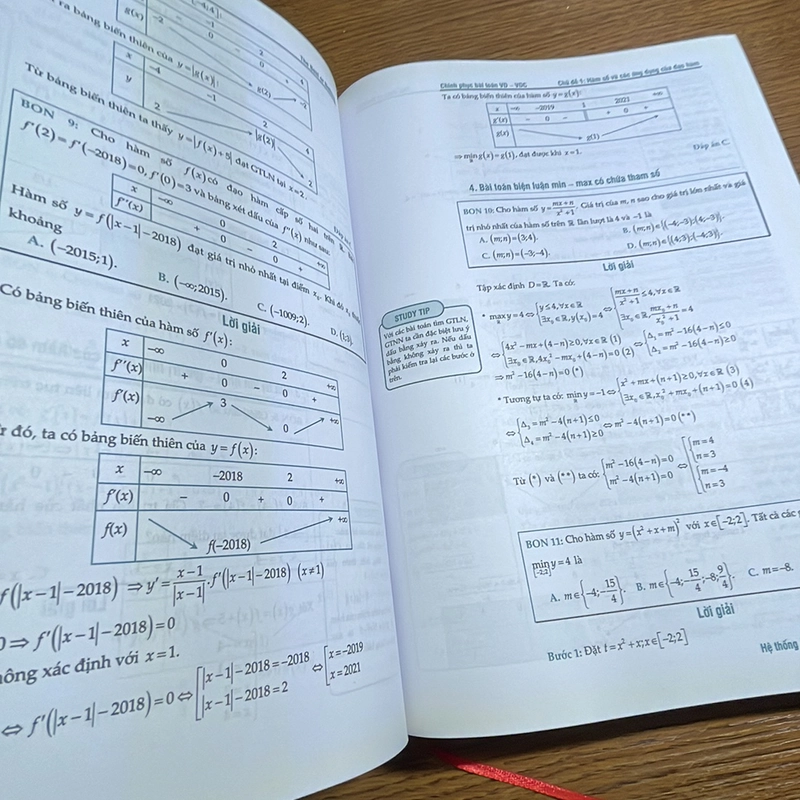 ra bảng biến thiên của y=|g(x)|:
x −4 −1 2 4
y 2 |g(2)| 2
Từ bảng biến thiên ta thấy y=|f(x)+5| đạt GTLN tại x=2.
BON 9: Cho hàm số f(x) có đạo hàm cấp số hai trên
f'(2)=f'(−2018)=0, f'(0)=3 và bảng xét dấu của f''(x) như sau:
x −∞ 0 2 +∞
f''(x) + 0 − 0 +
Hàm số y=f(|x−1|−2018) đạt giá trị nhỏ nhất tại điểm x₀. Khi đó x₀
khoảng
A. (−2015;1).
B. (−∞;2015).
C. (−1009;2).
Lời giải
Có bảng biến thiên của hàm số f'(x):
x −∞ 0 2 +∞
f''(x) + 0 − 0 +
f'(x) −∞ 3 0 +∞
đó, ta có bảng biến thiên của y=f(x):
x −∞ −2018 2 +∞
f'(x) − 0 + 0 +
f(x) f(−2018) +∞
f(|x−1|−2018) ⇒ y'=(x−1)/|x−1|.f'(|x−1|−2018) (x≠1)
0⇒f'(|x−1|−2018)=0
không xác định với x=1.
⇔ f'(|x−1|−2018)=0 ⇔ [|x−1|−2018=−2018 ⇔ [x=−2019
|x−1|−2018=2 x=2021
Chinh phục bài toán VD – VDC
Chủ đề 1: Hàm số và các ứng dụng của đạo hàm
Ta có bảng biến thiên của hàm số y=g(x):
x −∞ −2019 1 2021 +∞
g'(x) − 0 − + 0 +
g(x) g(1)
⇒ min g(x)=g(1), đạt được khi x=1.
Đáp án C.
4. Bài toán biện luận min – max có chứa tham số
BON 10: Cho hàm số y=(mx+n)/(x²+1). Giá trị của m, n sao cho giá trị lớn nhất và giá
trị nhỏ nhất của hàm số trên ℝ lần lượt là 4 và −1 là
A. (m;n)=(3;4).
B. (m;n)∈{(−4;−3);(4;−3)}.
C. (m;n)=(−3;−4).
D. (m;n)∈{(4;3);(−4;3)}.
Lời giải
STUDY TIP
Với các bài toán tìm GTLN,
GTNN ta cần đặc biệt lưu ý
dấu bằng xảy ra. Nếu dấu
bằng không xảy ra thì ta
phải kiểm tra lại các bước ở
trên.
Tập xác định D=ℝ. Ta có:
* max y=4 ⇔ {y≤4,∀x∈ℝ ⇔ {(mx+n)/(x²+1)≤4,∀x∈ℝ
∃x₀∈ℝ,y(x₀)=4 ∃x₀∈ℝ,(mx₀+n)/(x₀²+1)=4
⇔ {4x²−mx+(4−n)≥0,∀x∈ℝ (1) ⇔ {Δ₁=m²−16(4−n)≤0
∃x₀∈ℝ,4x₀²−mx₀+(4−n)=0 (2) Δ₂=m²−16(4−n)≥0
⇒ m²−16(4−n)=0 (*)
* Tương tự ta có: min y=−1 ⇔ {x²+mx+(n+1)≥0,∀x∈ℝ (3)
∃x₀∈ℝ,x₀²+mx₀+(n+1)=0 (4)
⇔ {Δ₃=m²−4(n+1)≤0 ⇔ m²−4(n+1)=0 (**)
Δ₄=m²−4(n+1)≥0
Từ (*) và (**) ta có: {m²−16(4−n)=0 ⇔ [{m=4
m²−4(n+1)=0 n=3
{m=−4
n=3
BON 11: Cho hàm số y=(x²+x+m)² với x∈[−2;2]. Tất cả các
min y=4 là
[−2;2]
A. m∈{−4;−15/4}.
B. m∈{−4;−15/4;−8;9/4}.
C. m=−8.
Lời giải
Bước 1: Đặt t=x²+x;x∈[−2;2]
Hệ thống